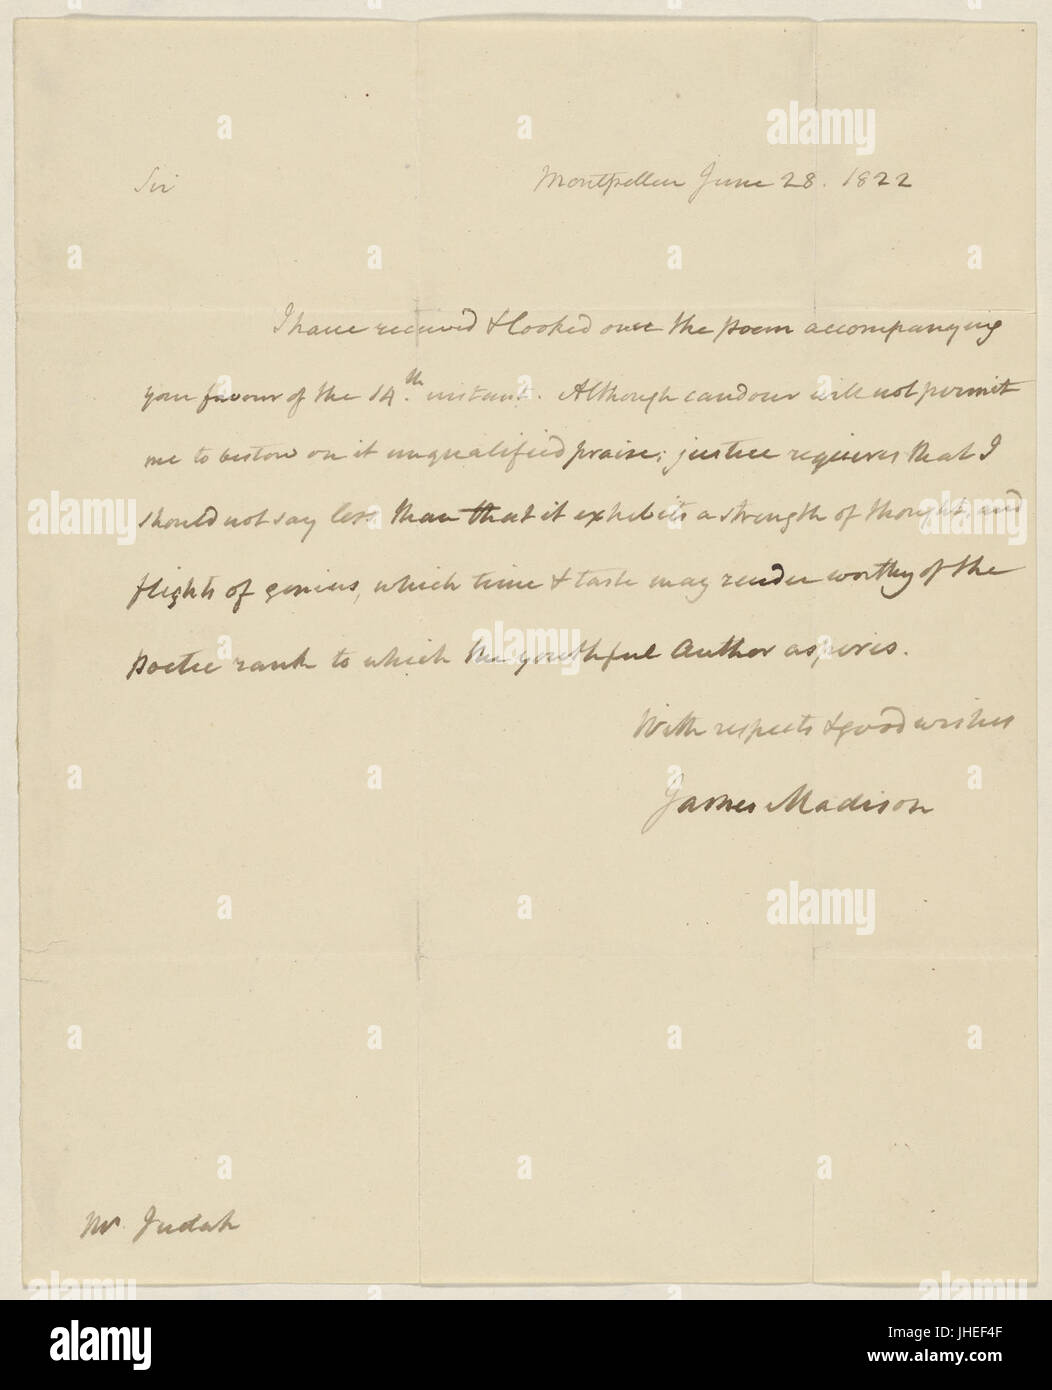 Sir Montpellier June 28. 1822
I have received & looked over the poem accompanying
your favour of the 14th. instant. Although candour will not permit
me to bestow on it unqualified praise; justice requires that I
should not say less than that it exhibits a strength of thought, and
flights of genius, which time & taste may render worthy of the
poetic rank to which the youthful Author aspires.
With respects & good wishes
James Madison
Mr. Judah
alamy
Image ID: JHEF4F
www.alamy.com